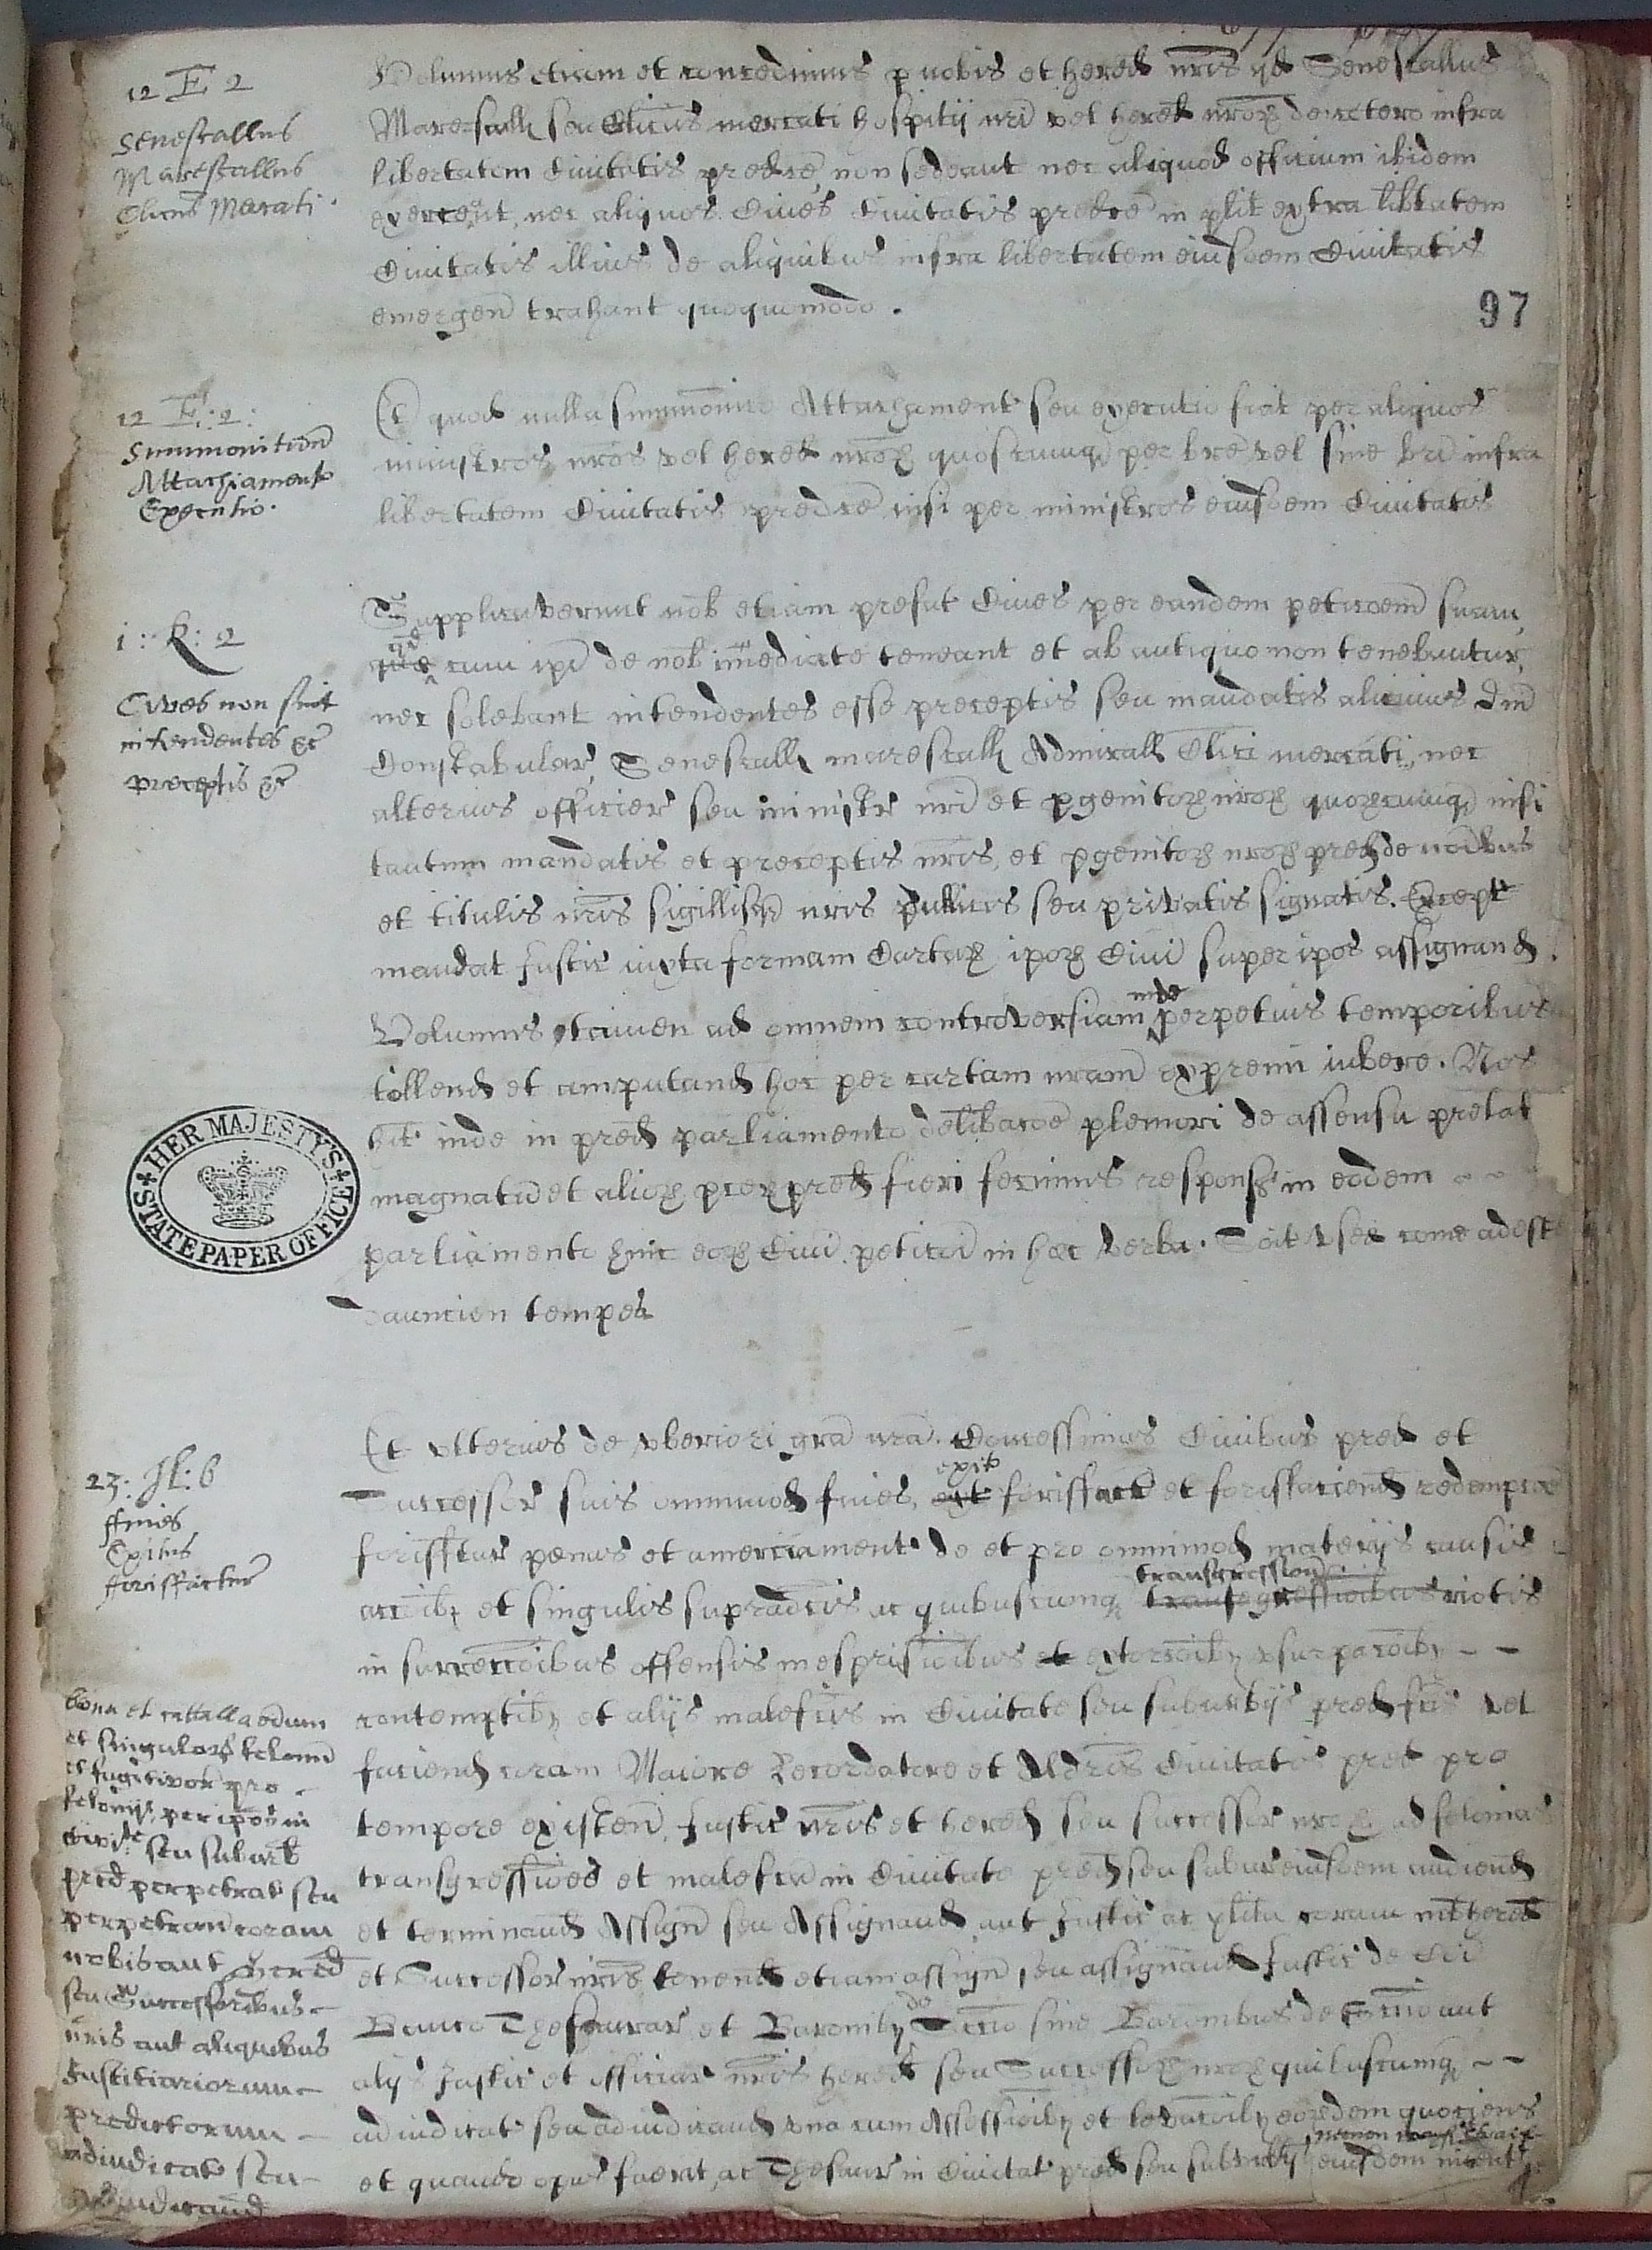 12 E 2
Senescallus
Marescallus
Clicus Mercati
Volumus etiam et concedimus p nobis et hered nris qd Senescallus
Marescall seu Clicus mercati hospitij nri vel hered nroȝ de cetero infra
libertatem Civitatis predce, non sedeant nec aliquod officium ibidem
exerceant, nec aliquos Cives Civitatis predce in plit extra libtatem
Civitatis illius de aliquibus infra libertatem eiusdem Civitatis
emergen trahant quoquomodo.
97
12 E: 2:
Summonition
Attachiament
Executio.
Et quod nulla summonitio Attachament seu executio fiat per aliquos
ministros nros vel hered nroȝ quoscumq per bre vel sine bri infra
libertatem Civitatis predce nisi per ministros eiusdem Civitatis
1: R: 2
Cives non sint
intendentes &c
preceptis &c
Supplicaverunt nob etiam prefat Cives per eandem peticoem suam,
qd cum ipi de nob immediate teneant et ab antiquo non tenebantur,
nec solebant intendentes esse preceptis seu mandatis alicuius Dni
Constabular, Senescall marescall Admirall Clici mercati, nec
alterius officiar seu ministr nri et pgenitoȝ nroȝ quoȝcumq nisi
tantum mandatis et preceptis nris, et pgenitoȝ nroȝ pred de noibus
et titulis nris sigillisq nris publicis seu privatis signatis. Except
mandat Justic iuxta formam Cartaȝ ipoȝ Civi super ipos assignand.
Volumus tamen ad omnem controversiam inde perpetuis temporibus
tollend et amputand hoc per cartam nram exprimi iubere. Nos
hit inde in pred parliamento delibacoe pleniori de assensu prelat
magnatu et alioȝ pceȝ pred fieri fecimus respons in eodem
parliamento huic eoȝ Civi peticoi in hec verba. Soit use come ad este
dauncien temps
HER MAJESTY'S
STATE PAPER OFFICE
23: H: 6
ffines
Exitus
fforisffactur
Et ulterius de uberiori gra nra. Concessimus Civibus pred et
Successor suis omnimod fines, exit forisfact et forisfaciend redempcoes
forisfctur penas et amerciament de et pro omnimod materijs causis
accoibȝ et singulis supradcis ac quibuscumq transgression riotis
in surreccoibus offensis mesprisioibus extorcoibȝ usurpacoibȝ
contemptibȝ et alijs malefcis in Civitate seu suburbijs pred fcis vel
faciend coram Maiore Recordatore et Aldris Civitatis pred pro
tempore existen, Justic nris et hered seu successor nroȝ ad felonias
transgressiones et malefca in Civitate pred seu subur eiusdem audiend
et terminand Assign seu Assignand, aut Justic ac plita coram nob hered
et Successor nris tenend etiam assign seu assignand Justic de Coi
Banco Thesaurar et Baronibȝ de Sccio sive Baronibus de Sccio aut
alijs Justic et officiar nris hered seu Successoȝ nroȝ quibuscumq
adiudicat seu adiudicand una cum Assessioibȝ et levacoibȝ eoȝdem quociens
et quando opus fuerit, ac Thesaur in Civitat pred seu suburbijs eiusdem invent
bona et catalla omnium
et singuloȝ felonu
et fugitivoȝ pro
felonijs per ipos in
Civite seu suburb
pred perpetrat seu
perpetrand coram
nobis aut hered
seu Successoribus
nris aut aliquibus
Justiciariorum
predictorum
adiudicat seu
adiudicand